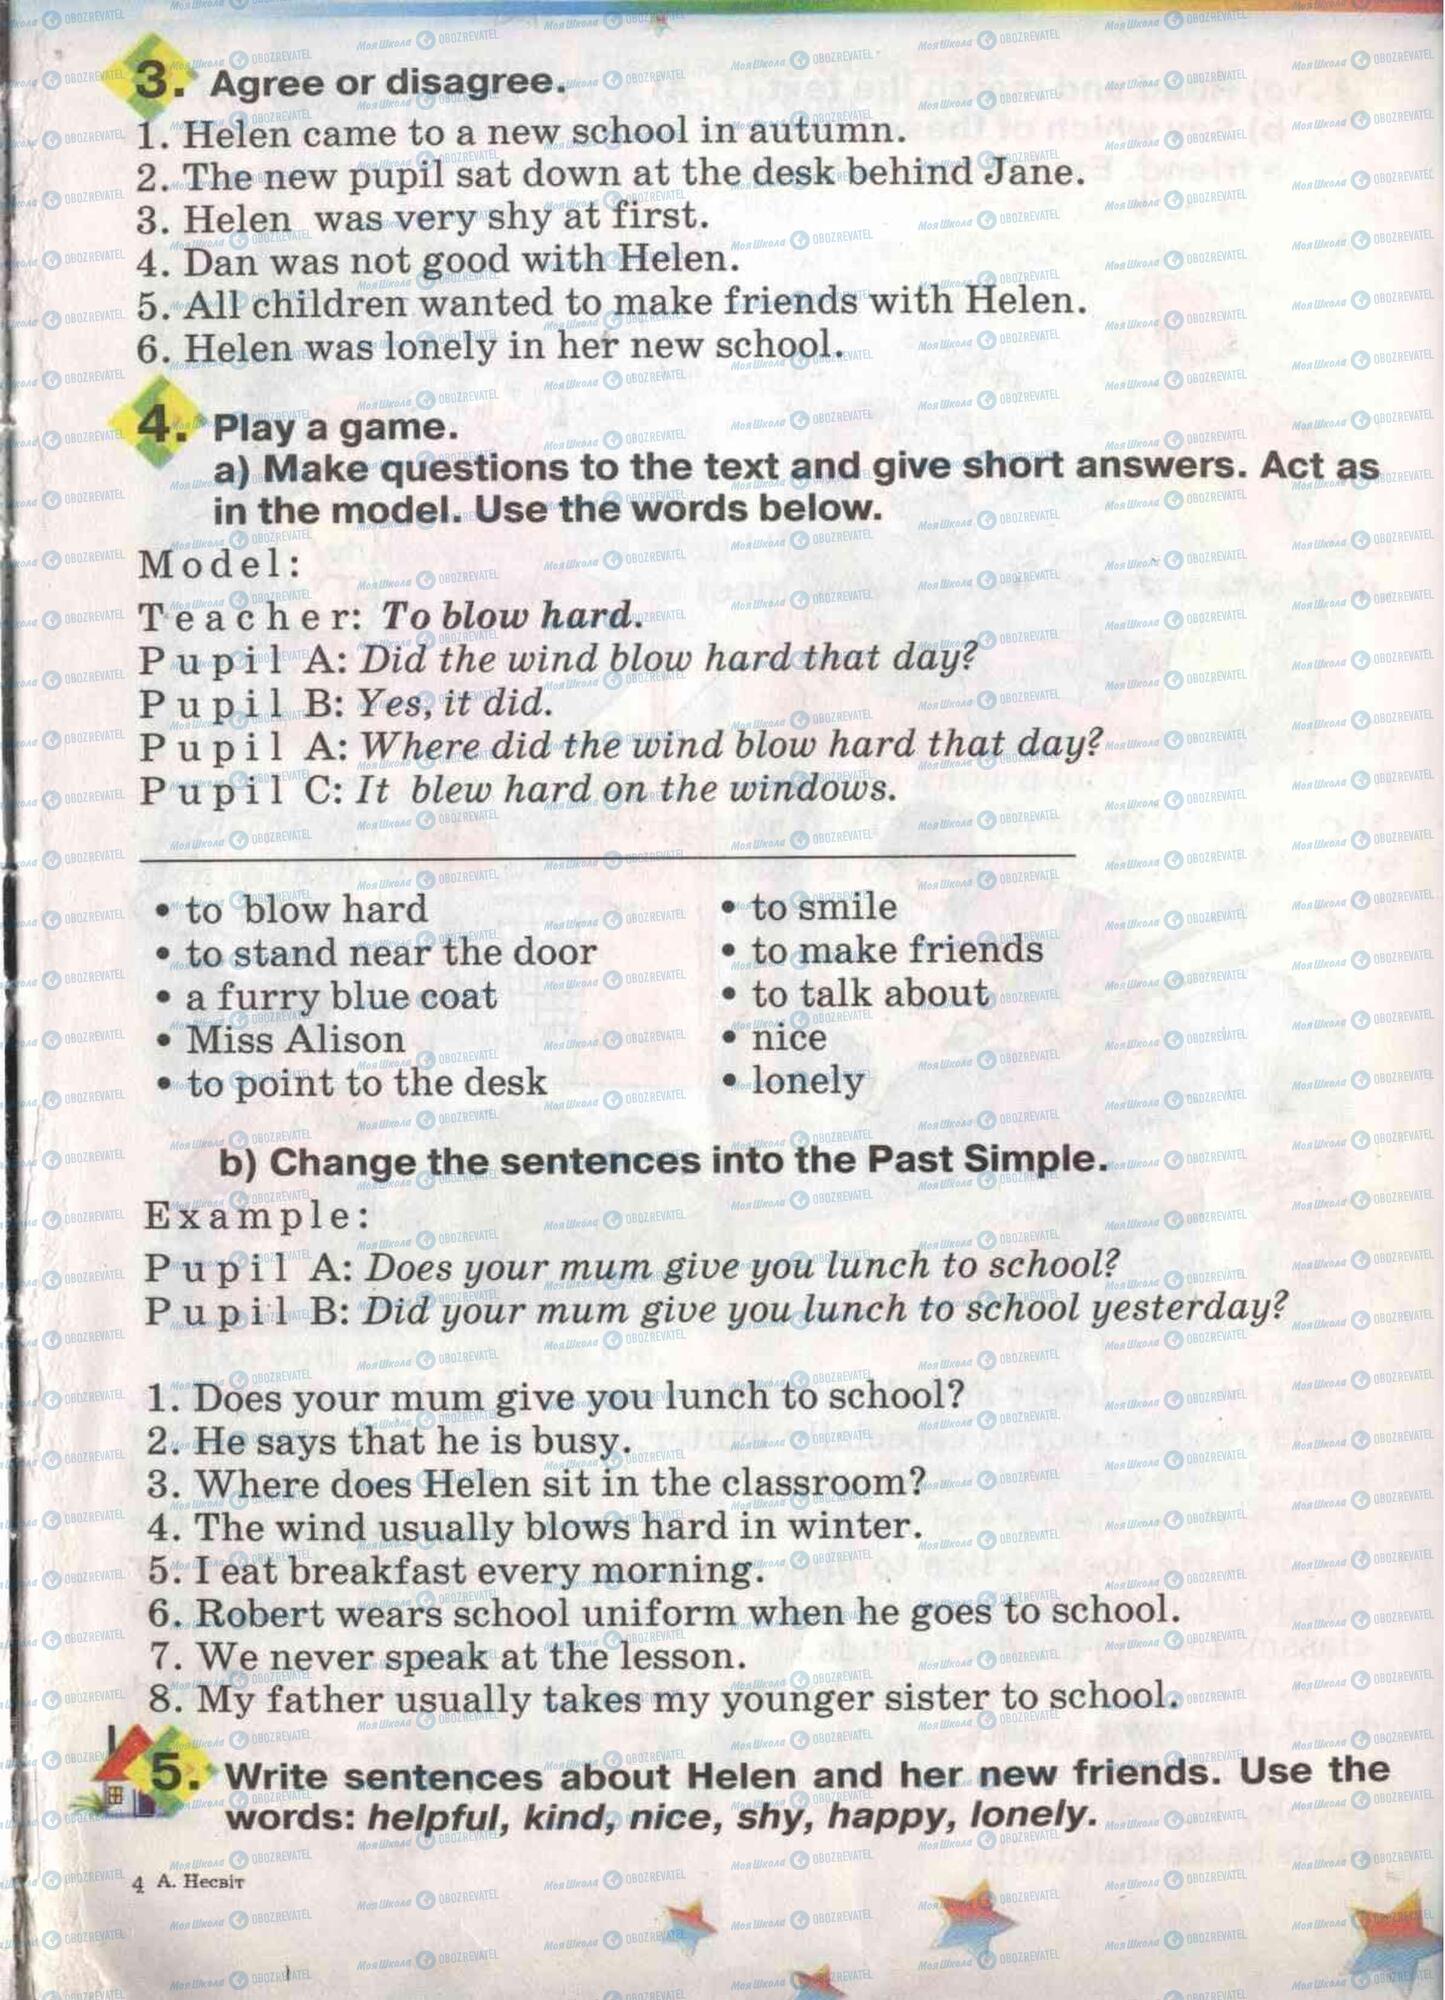 3. Agree or disagree.
1. Helen came to a new school in autumn.
2. The new pupil sat down at the desk behind Jane.
3. Helen was very shy at first.
4. Dan was not good with Helen.
5. All children wanted to make friends with Helen.
6. Helen was lonely in her new school.
4. Play a game.
a) Make questions to the text and give short answers. Act as
in the model. Use the words below.
Model:
Teacher: To blow hard.
Pupil A: Did the wind blow hard that day?
Pupil B: Yes, it did.
Pupil A: Where did the wind blow hard that day?
Pupil C: It blew hard on the windows.
• to blow hard
• to stand near the door
• a furry blue coat
• Miss Alison
• to point to the desk
• to smile
• to make friends
• to talk about
• nice
• lonely
b) Change the sentences into the Past Simple.
Example:
Pupil A: Does your mum give you lunch to school?
Pupil B: Did your mum give you lunch to school yesterday?
1. Does your mum give you lunch to school?
2. He says that he is busy.
3. Where does Helen sit in the classroom?
4. The wind usually blows hard in winter.
5. I eat breakfast every morning.
6. Robert wears school uniform when he goes to school.
7. We never speak at the lesson.
8. My father usually takes my younger sister to school.
5. Write sentences about Helen and her new friends. Use the
words: helpful, kind, nice, shy, happy, lonely.
4 А. Несвіт
Моя Школа OBOZREVATEL